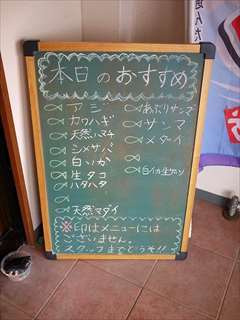 本日のおすすめ
アジ
カワハギ
天然ハマチ
シメサバ
白いか
生タコ
ハタハタ
天然マダイ
あぶりサンマ
サンマ
メダイ
※印はメニューには
ございません。
スタッフまでどうぞ!!